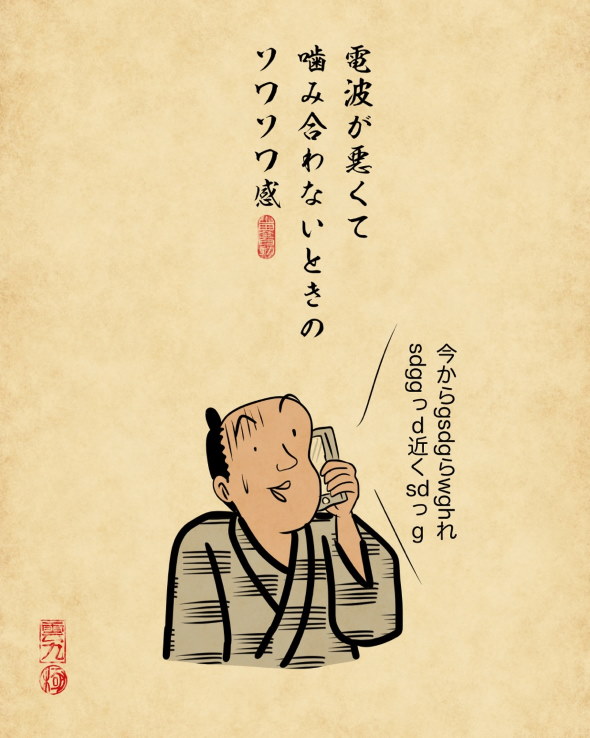 電波が悪くて
噛み合わないときの
ソワソワ感
今からgsdgらwghれ
sdggっd近くsdっg